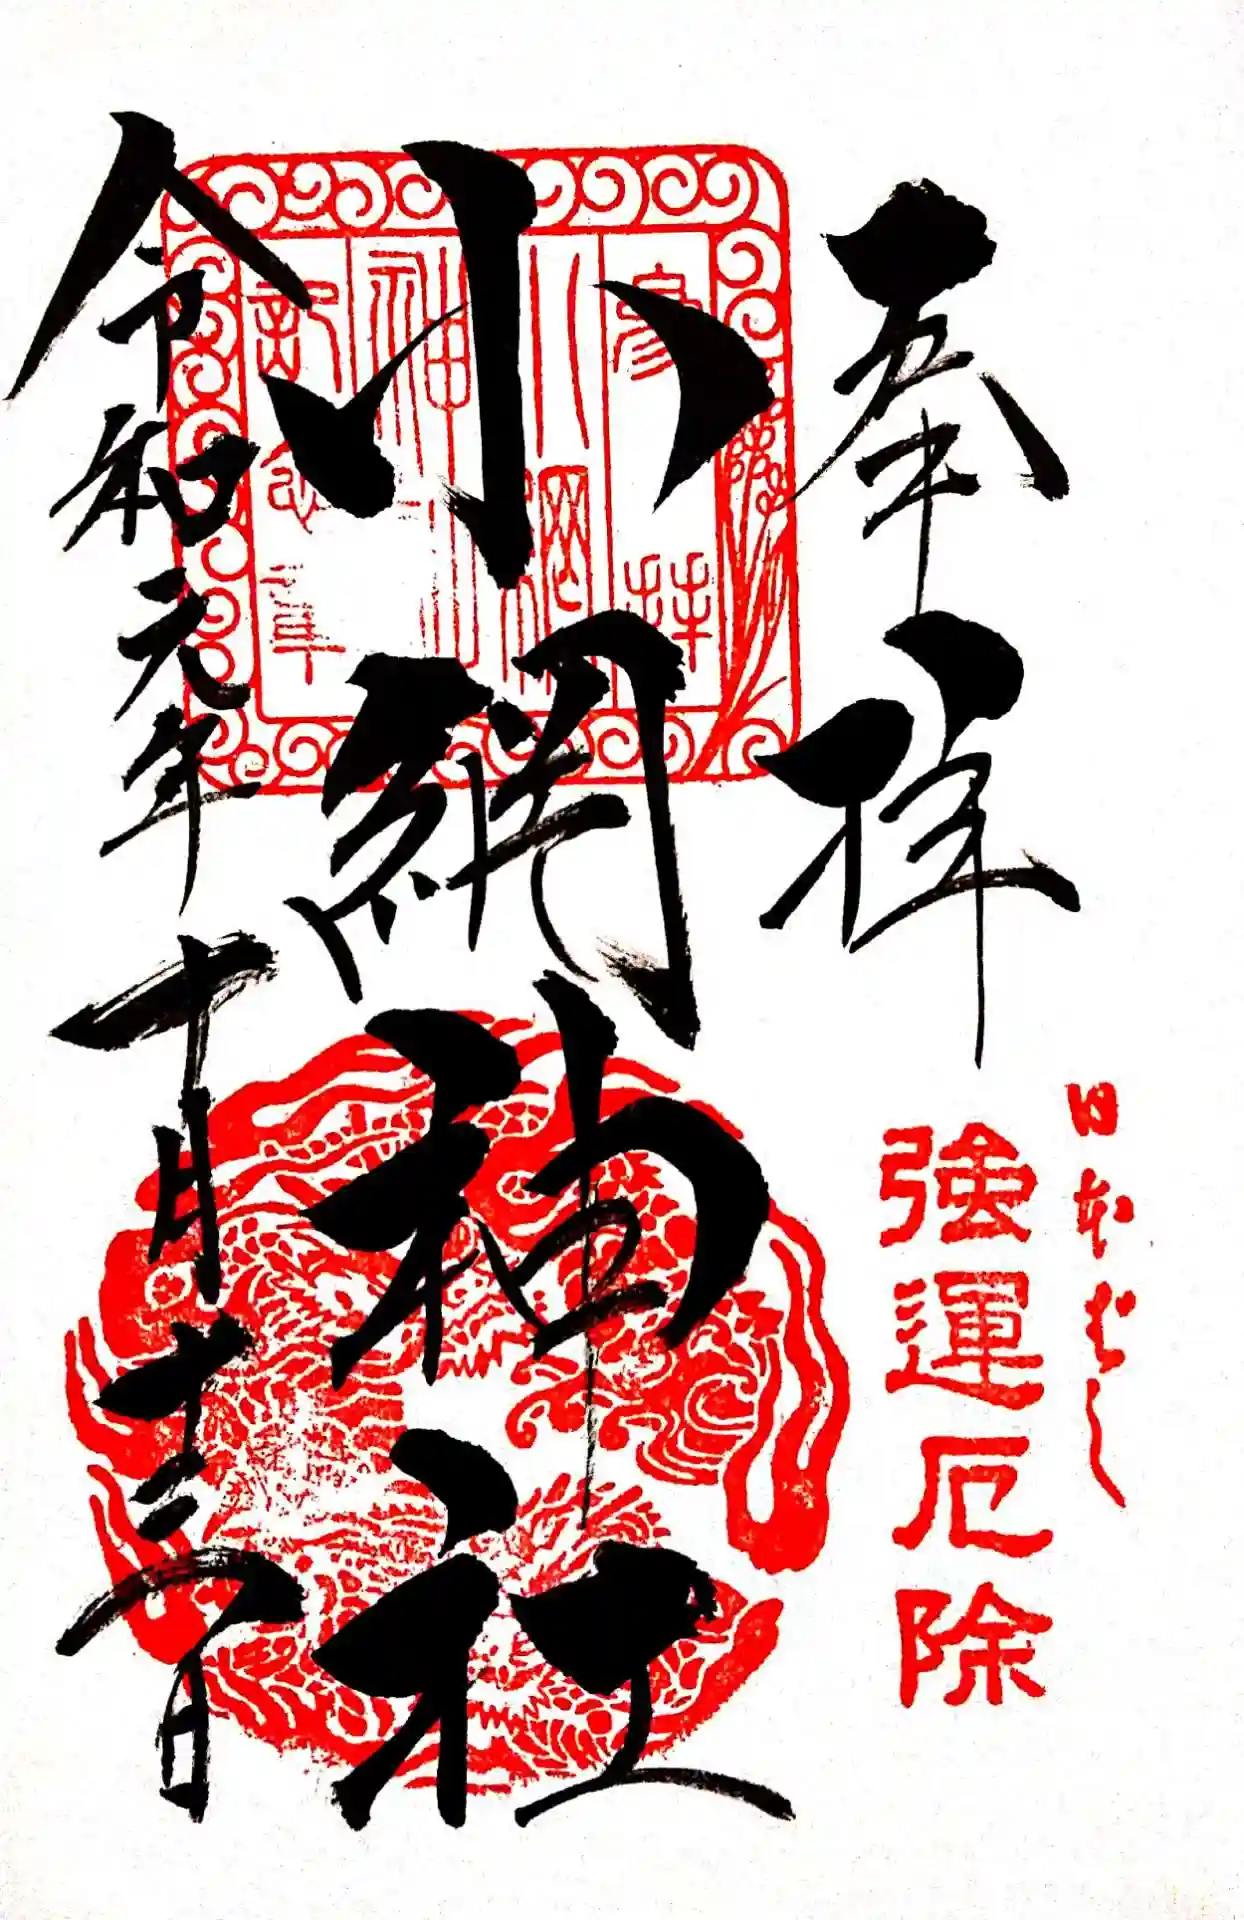 奉拝
日本ばし
強運厄除
参拝
小網
神
記念
小網神社
令和元年十月十三日